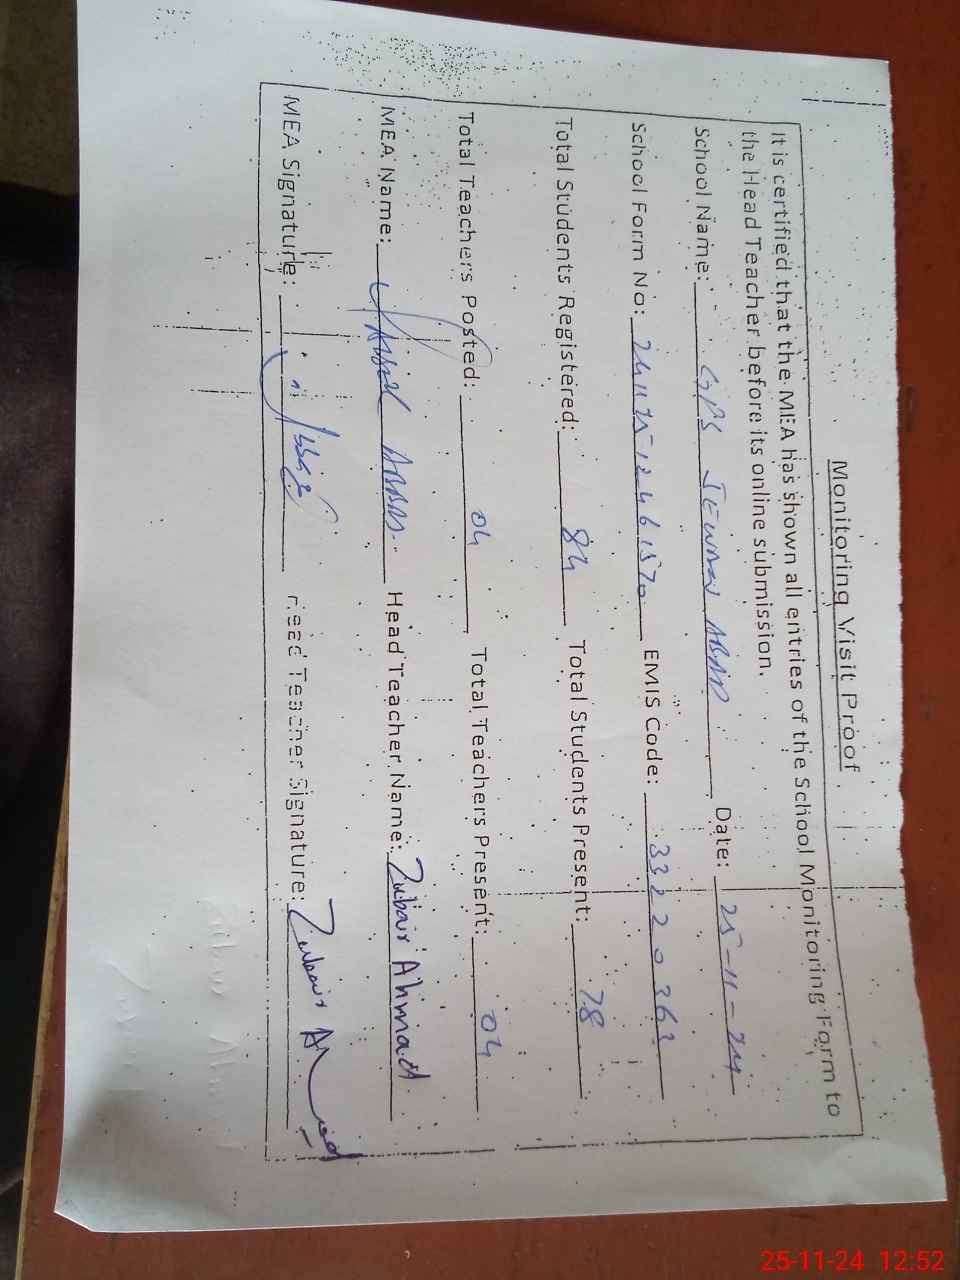 Monitoring Visit Proof
It is certified that the MEA has shown all entries of the School Monitoring Form to
the Head Teacher before its online submission.
School Name: GPS JEWAN ABAD Date: 25-11-24
School Form No: EMIS Code: 33220363
Total Students Registered: 84 Total Students Present: 78
Total Teachers Posted: 04 Total Teachers Present: 04
MEA Name: ABBAS Head Teacher Name: Zubair Ahmad
MEA Signature: Head Teacher Signature: Zubair
25-11-24 12:52